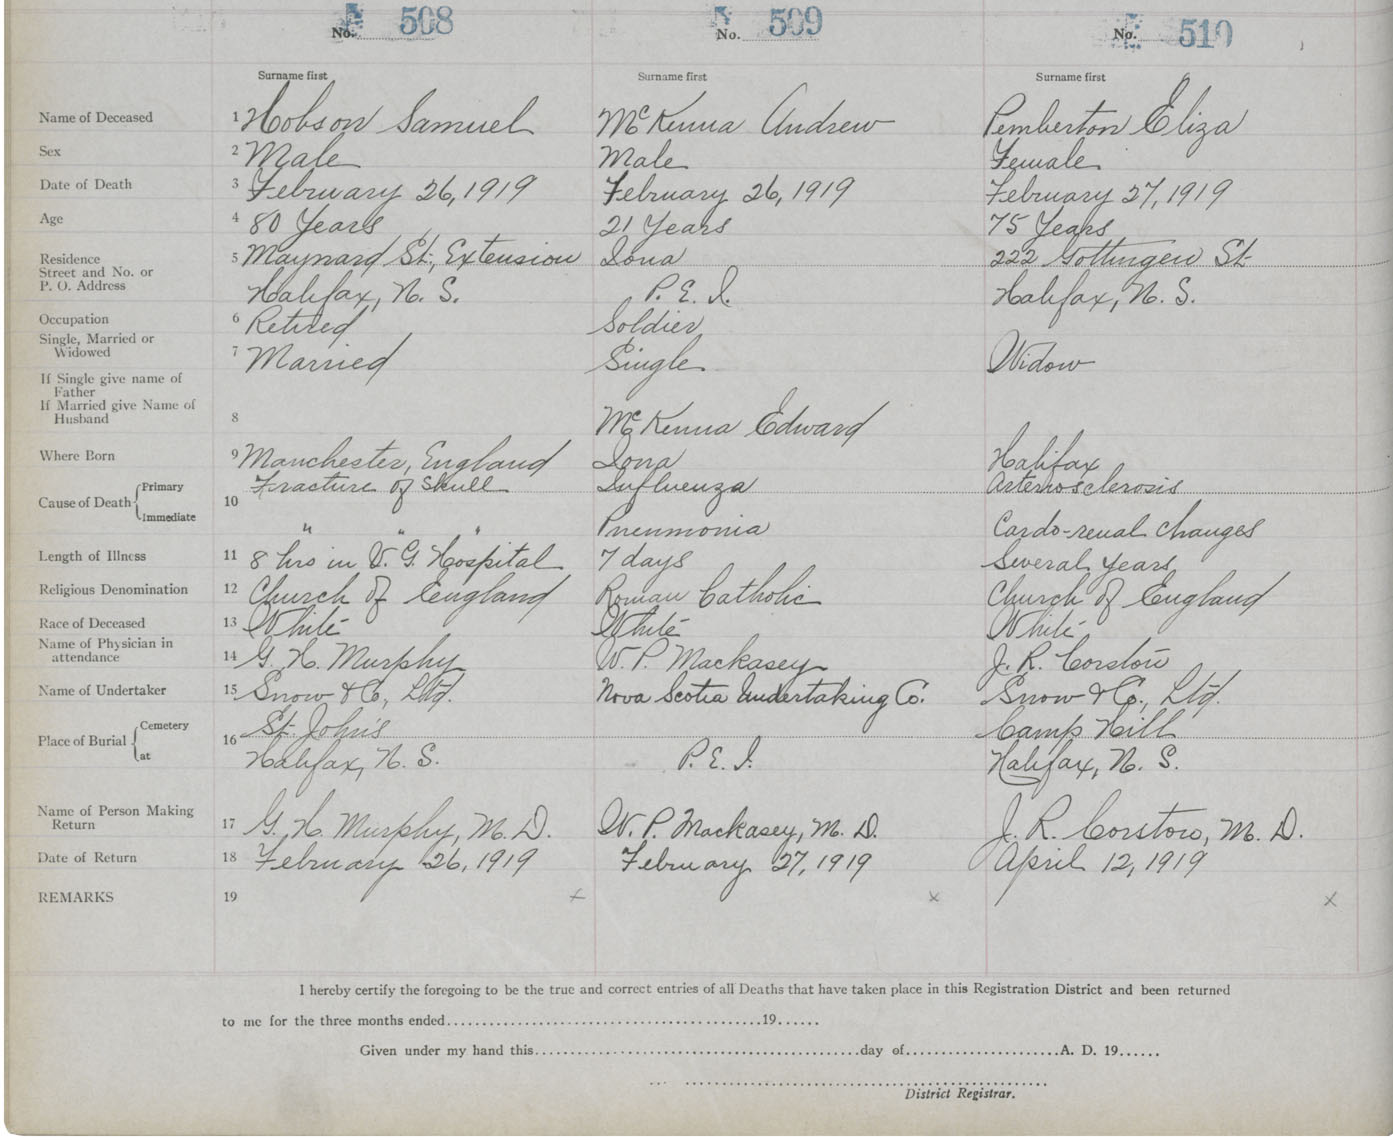 No. 508 No. 509 No. 510
Surname first Surname first Surname first
Name of Deceased 1 Hobson Samuel McKenna Andrew Pemberton Eliza
Sex 2 Male Male Female
Date of Death 3 February 26, 1919 February 26, 1919 February 27, 1919
Age 4 80 Years 21 Years 75 Years
Residence 5 Maynard St., Extension Iona 222 Gottingen St
Street and No. or
P. O. Address Halifax, N. S. P. E. I. Halifax, N. S.
Occupation 6 Retired Soldier
Single, Married or
Widowed 7 Married Single Widow
If Single give name of
Father
If Married give Name of
Husband 8 McKenna Edward
Where Born 9 Manchester, England Iona Halifax
Cause of Death { Primary 10 Fracture of Skull Influenza Arteriosclerosis
Immediate " " " Pneumonia Cardo-renal changes
Length of Illness 11 8 hrs in V. G. Hospital 7 days Several years
Religious Denomination 12 Church of England Roman Catholic Church of England
Race of Deceased 13 White White White
Name of Physician in
attendance 14 G. H. Murphy W. P. Mackasey J. R. Corston
Name of Undertaker 15 Snow & Co, Ltd. Nova Scotia Undertaking Co. Snow & Co., Ltd.
Place of Burial { Cemetery 16 St. John's Camp Hill
at Halifax, N. S. P. E. I. Halifax, N. S.
Name of Person Making
Return 17 G. H. Murphy, M. D. W. P. Mackasey, M. D. J. R. Corston, M. D.
Date of Return 18 February 26, 1919 February 27, 1919 April 12, 1919
REMARKS 19 x x x
I hereby certify the foregoing to be the true and correct entries of all Deaths that have taken place in this Registration District and been returned
to me for the three months ended..............................................19......
Given under my hand this..............................................day of......................A. D. 19......
District Registrar.